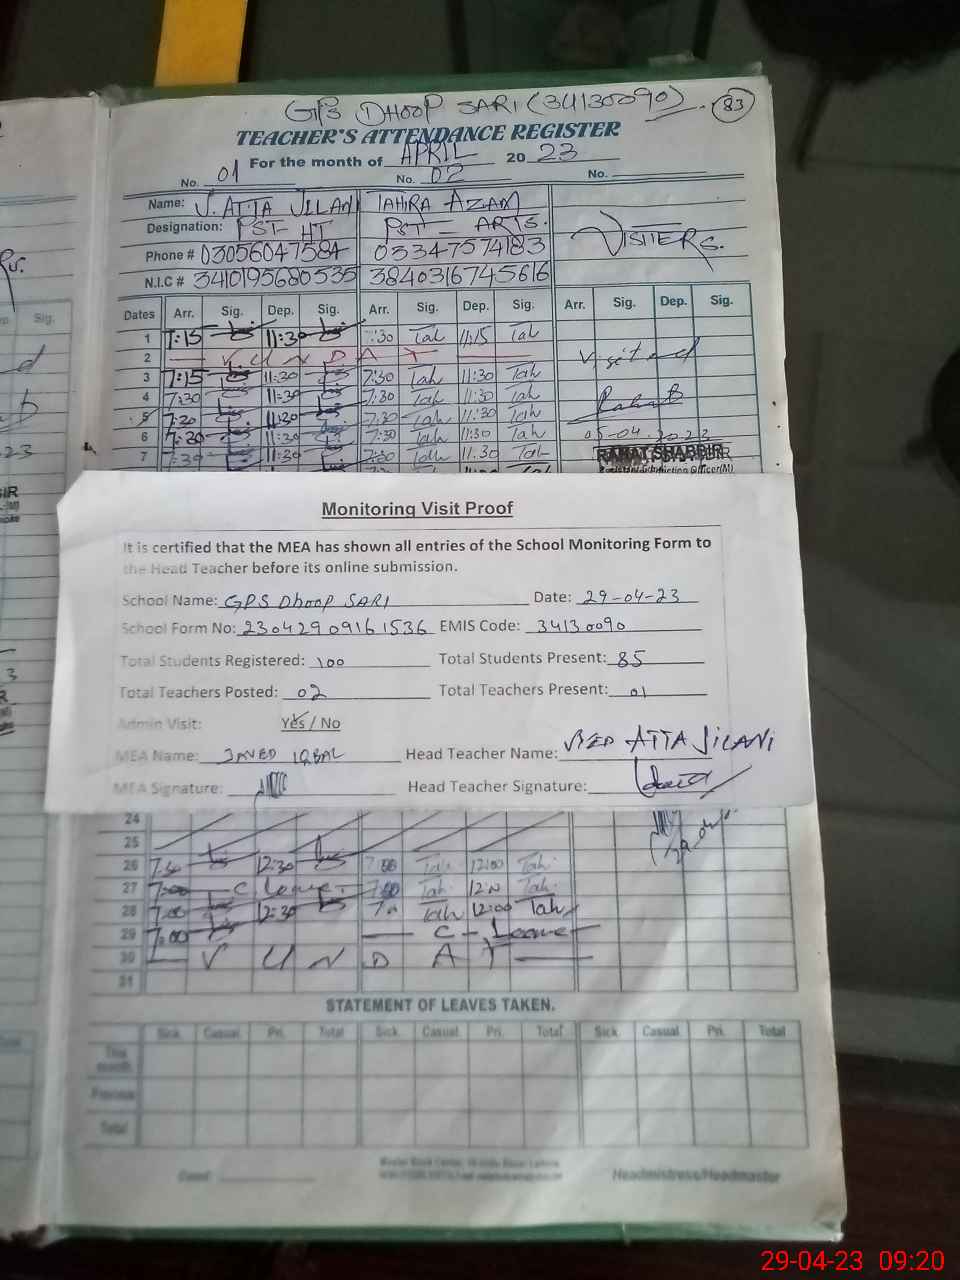 GPS DHOOP SARI (34130090) 83
TEACHER'S ATTENDANCE REGISTER
For the month of APRIL 2023
No. 01 No. 02 No.
Name: S. ATTA JILANI TAHIRA AZAM
Designation: PST-HT PST - ARTS. VISITERS.
Phone # 03056047584 03347574183
N.I.C # 3410195680535 3840316745616
Dates Arr. Sig. Dep. Sig. Arr. Sig. Dep. Sig. Arr. Sig. Dep. Sig.
1 7:15 11:30 7:30 Tah 11:15 Tah
2 S U N D A Y Visited
3 7:15 11:30 7:30 Tah 11:30 Tah
4 7:30 11:30 7:30 Tah 11:30 Tah
5 7:30 11:30 7:30 Tah 11:30 Tah
6 7:30 11:30 7:30 Tah 11:30 Tah 05-04-2023
7 7:30 11:30 7:30 Tah 11:30 Tah
Monitoring Visit Proof
It is certified that the MEA has shown all entries of the School Monitoring Form to
the Head Teacher before its online submission.
School Name: GPS Dhoop SARI Date: 29-04-23
School Form No: 23042909161536 EMIS Code: 34130090
Total Students Registered: 100 Total Students Present: 85
Total Teachers Posted: 02 Total Teachers Present: 01
Admin Visit: Yes / No
MEA Name: JAVED IQBAL Head Teacher Name: SYED ATTA JILANI
MEA Signature: Head Teacher Signature:
24
25
26 7:30 12:30 7:00 Tah 12:00 Tah
27 7:00 C Leave 7:00 Tah 12:00 Tah
28 7:00 12:30 7:00 Tah 12:00 Tah
29 7:00 C - Leave
30 S U N D A Y
31
STATEMENT OF LEAVES TAKEN.
Sick. Casual. Pri. Total Sick. Casual. Pri. Total Sick. Casual. Pri. Total
This month
Previous
Total
Headmistress/Headmaster
29-04-23 09:20